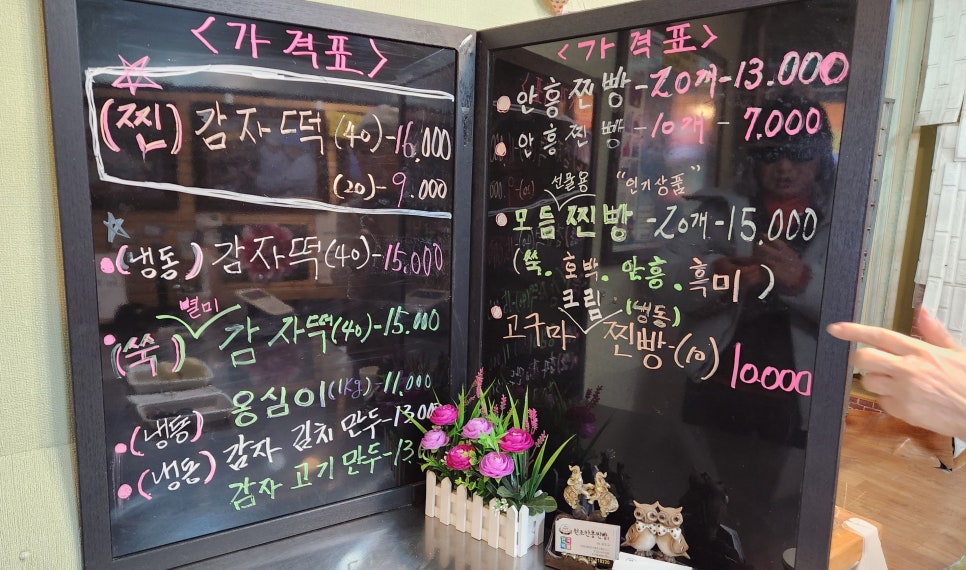 <가격표>
(찐) 감자떡(40)-16.000
(20)-9.000
(냉동) 감자떡(40)-15.000
별미
(쑥) 감자떡(40)-15.000
옹심이(1kg)-11.000
(냉동) 감자 김치 만두-13.00
(냉동) 감자 고기 만두-13.
<가격표>
안흥찐빵-20개-13.000
안흥찐빵-10개-7.000
선물용 "인기상품"
모듬찐빵-20개-15.000
(쑥.호박.안흥.흑미)
크림 (냉동)
고구마 찐빵-(10) 10.000